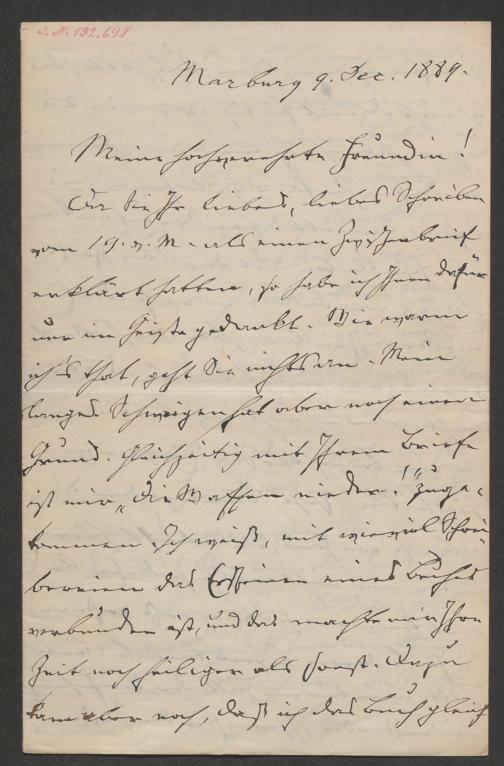 I.N. 132.698
Marburg 9. Dec. 1889.
Meine hochverehrte Freundin!
Da Sie Ihr liebes, liebes Schreiben
vom 19. v. M. als einen Zwischenbrief
erklärt hatten, so habe ich Ihnen dafür
nur im Geiste gedankt. Wie warm
ich's that, geht Sie nichts an. Mein
langes Schweigen hat aber noch einen
Grund. Gleichzeitig mit Ihrem Briefe
ist mir „Die Waffen nieder!" zuge-
kommen. Ich weiß, mit wieviel Schrei-
bereien das Erscheinen eines Buches
verbunden ist, und das machte mir Ihre
Zeit noch heiliger als sonst. Dazu
kam aber noch, daß ich das Buch gleich